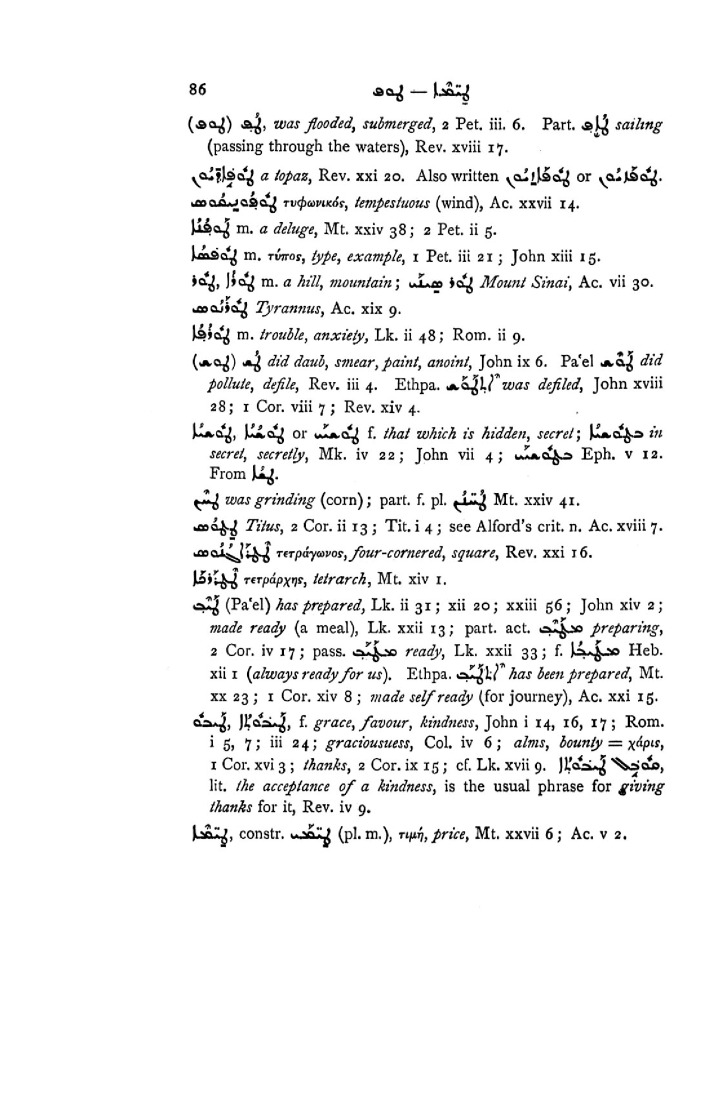 86 ܛܘܦ — ܛܝ̈ܡܐ
(ܛܘܦ) ܛܳܦ, was flooded, submerged, 2 Pet. iii. 6. Part. ܛܳܐܶܦ sailing
(passing through the waters), Rev. xviii 17.
a topaz, Rev. xxi 20. Also written or
ܛܘܦܘܢܝܩܘܣ τυφωνικός, tempestuous (wind), Ac. xxvii 14.
ܛܘܦܢܐ m. a deluge, Mt. xxiv 38; 2 Pet. ii 5.
ܛܘܦܣܐ m. τύπος, type, example, 1 Pet. iii 21; John xiii 15.
ܛܘܪ, ܛܘܪܐ m. a hill, mountain; ܛܘܪ ܣܝܢܝ Mount Sinai, Ac. vii 30.
ܛܘܪܢܘܣ Tyrannus, Ac. xix 9.
ܛܘܪܦܐ m. trouble, anxiety, Lk. ii 48; Rom. ii 9.
(ܛܘܫ) ܛܫ did daub, smear, paint, anoint, John ix 6. Paʿel ܛܘܫ did
pollute, defile, Rev. iii 4. Ethpa. ܐܬܛܘܫ was defiled, John xviii
28; 1 Cor. viii 7; Rev. xiv 4.
ܛܘܫܝܐ, ܛܘܫܝܐ or ܛܘܫܝ f. that which is hidden, secret; ܒܛܘܫܝܐ in
secret, secretly, Mk. iv 22; John vii 4; ܒܛܘܫܝ Eph. v 12.
From ܛܫܐ.
ܛܚܢ was grinding (corn); part. f. pl. ܛܚ̈ܢܢ Mt. xxiv 41.
ܛܛܘܣ Titus, 2 Cor. ii 13; Tit. i 4; see Alford's crit. n. Ac. xviii 7.
ܛܛܪܐܓܘܢܘܣ τετράγωνος, four-cornered, square, Rev. xxi 16.
τετράρχης, tetrarch, Mt. xiv 1.
ܛܝܒ (Paʿel) has prepared, Lk. ii 31; xii 20; xxiii 56; John xiv 2;
made ready (a meal), Lk. xxii 13; part. act. ܡܛܝܒ preparing,
2 Cor. iv 17; pass. ܡܛܝܒ ready, Lk. xxii 33; f. ܡܛܝܒܐ Heb.
xii 1 (always ready for us). Ethpa. ܐܬܛܝܒ has been prepared, Mt.
xx 23; 1 Cor. xiv 8; made self ready (for journey), Ac. xxi 15.
ܛܝܒܘ, ܛܝܒܘܬܐ, f. grace, favour, kindness, John i 14, 16, 17; Rom.
i 5, 7; iii 24; graciousuess, Col. iv 6; alms, bounty = χάρις,
1 Cor. xvi 3; thanks, 2 Cor. ix 15; cf. Lk. xvii 9. ܩܘܒܠ ܛܝܒܘܬܐ,
lit. the acceptance of a kindness, is the usual phrase for giving
thanks for it, Rev. iv 9.
ܛܝ̈ܡܐ, constr. ܛܝ̈ܡܝ (pl. m.), τιμή, price, Mt. xxvii 6; Ac. v 2.